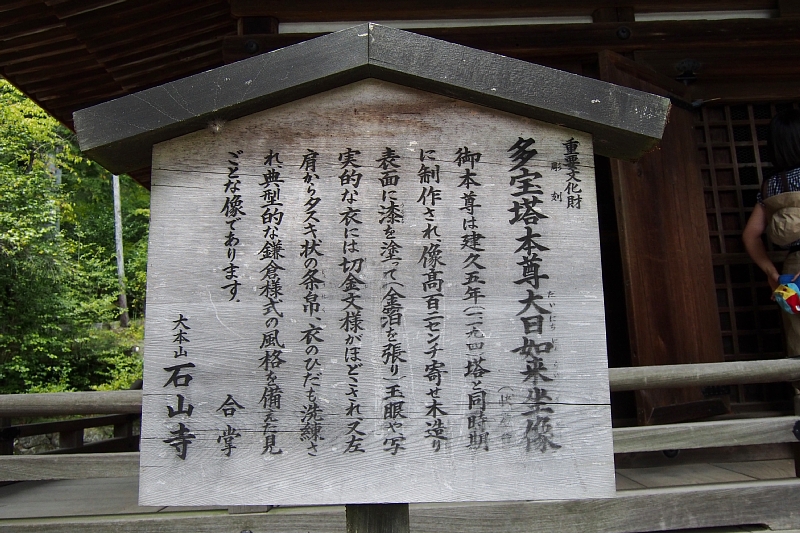 重要文化財
彫刻
多宝塔本尊大日如来坐像
御本尊は建久五年(一一九四)塔と同時期
に制作され、像高百二センチ寄せ木造り
表面に漆を塗って(金箔を張り)玉眼や写
実的な衣には切金文様がほどこされ又左
肩からタスキ状の条帛、衣のひだも洗練さ
れ典型的な鎌倉様式の風格を備えた見
ごとな像であります。
合掌
大本山
石山寺